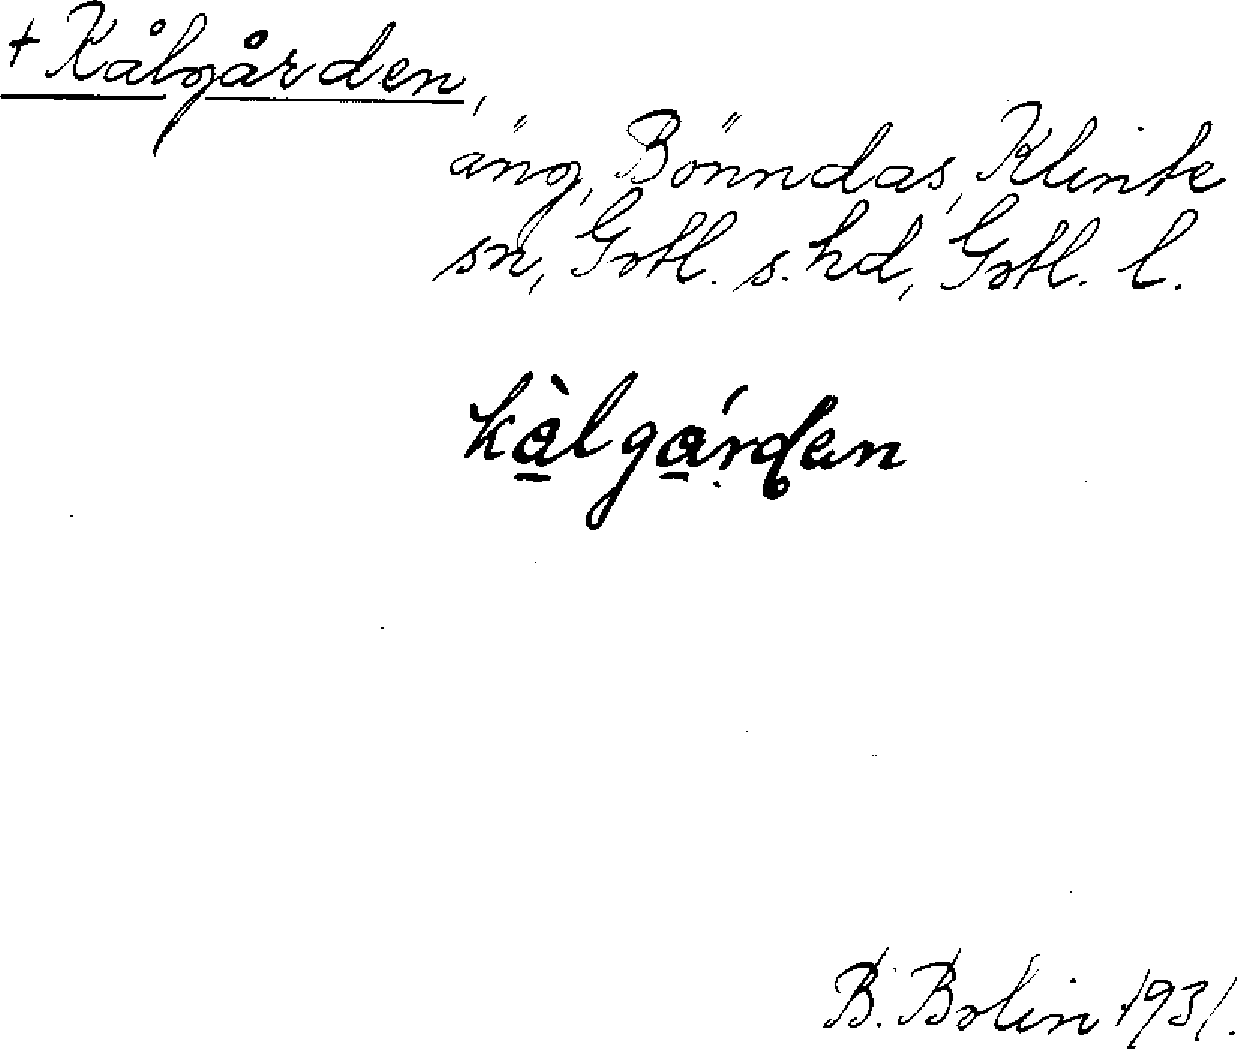 + Kålgården,
äng, Bönndas, Klinte
sn, Gotl. s. hd, Gotl. l.
kàlgárden
B. Bolin 1931.